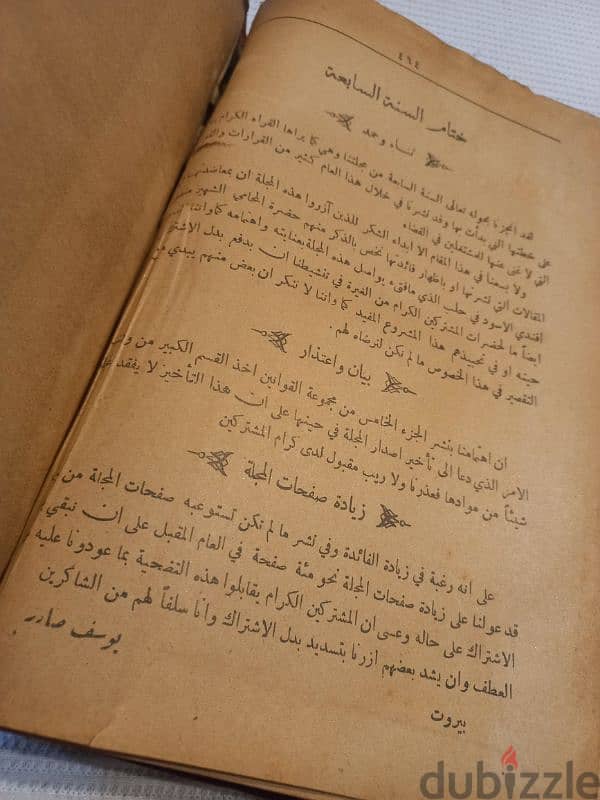 ٤٦٤
ختام السنة السابعة
ثناء وحمد
هذا الجزء بحوله تعالى السنة السابعة من مجلتنا وهي كما يراها القراء الكرام
على خطتها التي بدأت بها وقد نشرنا في خلال هذا العام كثير من القرارات
التي لا غنى عنها للمشتغلين في القضاء
ولا يسعنا في هذا المقام الا ابداء الشكر للذين آزروا هذه المجلة ان بمعاضد
المقالات التي نشرتها او باظهار فائدتها نخص بالذكر منهم حضرة المحامي الشهير
افندي الاسود في حلب الذي مافتىء يواصل هذه المجلة بعنايته واهتمامه كما واننا
ايضاً ما لحضرات المشتركين الكرام من الغيرة في تنشيطنا ان بدفع بدل الاشتر
حينه او في تحبيذهم هذا المشروع المفيد كما واننا لا ننكر ان بعض منهم يبدي
التقصير في هذا الخصوص ما لم نكن لنرضاه لهم .
بيان واعتذار
ان اهتمامنا بنشر الجزء الخامس من مجموعة القوانين اخذ القسم الكبير من
الامر الذي دعا الى تأخير اصدار المجلة في حينها على ان هذا التأخير لا يفقد
شيئاً من موادها فعذرنا ولا ريب مقبول لدى كرام المشتركين
زيادة صفحات المجلة
على انه رغبة في زيادة الفائدة وفي نشر ما لم تكن تستوعبه صفحات المجلة من
قد عولنا على زيادة صفحات المجلة نحو مئة صفحة في العام المقبل على ان نبقي
الاشتراك على حاله وعسى ان المشتركين الكرام يقابلوا هذه التضحية بما عودونا عليه
العطف وان يشد بعضهم ازرنا بتسديد بدل الاشتراك وانا سلفاً لهم من الشاكرين
بيروت يوسف صادر
dubizzle